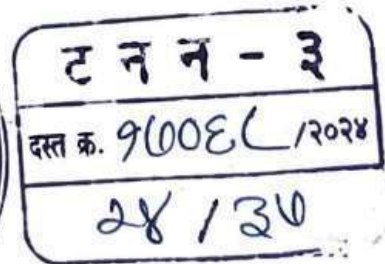 ट न न - ३
दस्त क्र. १७०६८ /२०२४
२४ / ३७